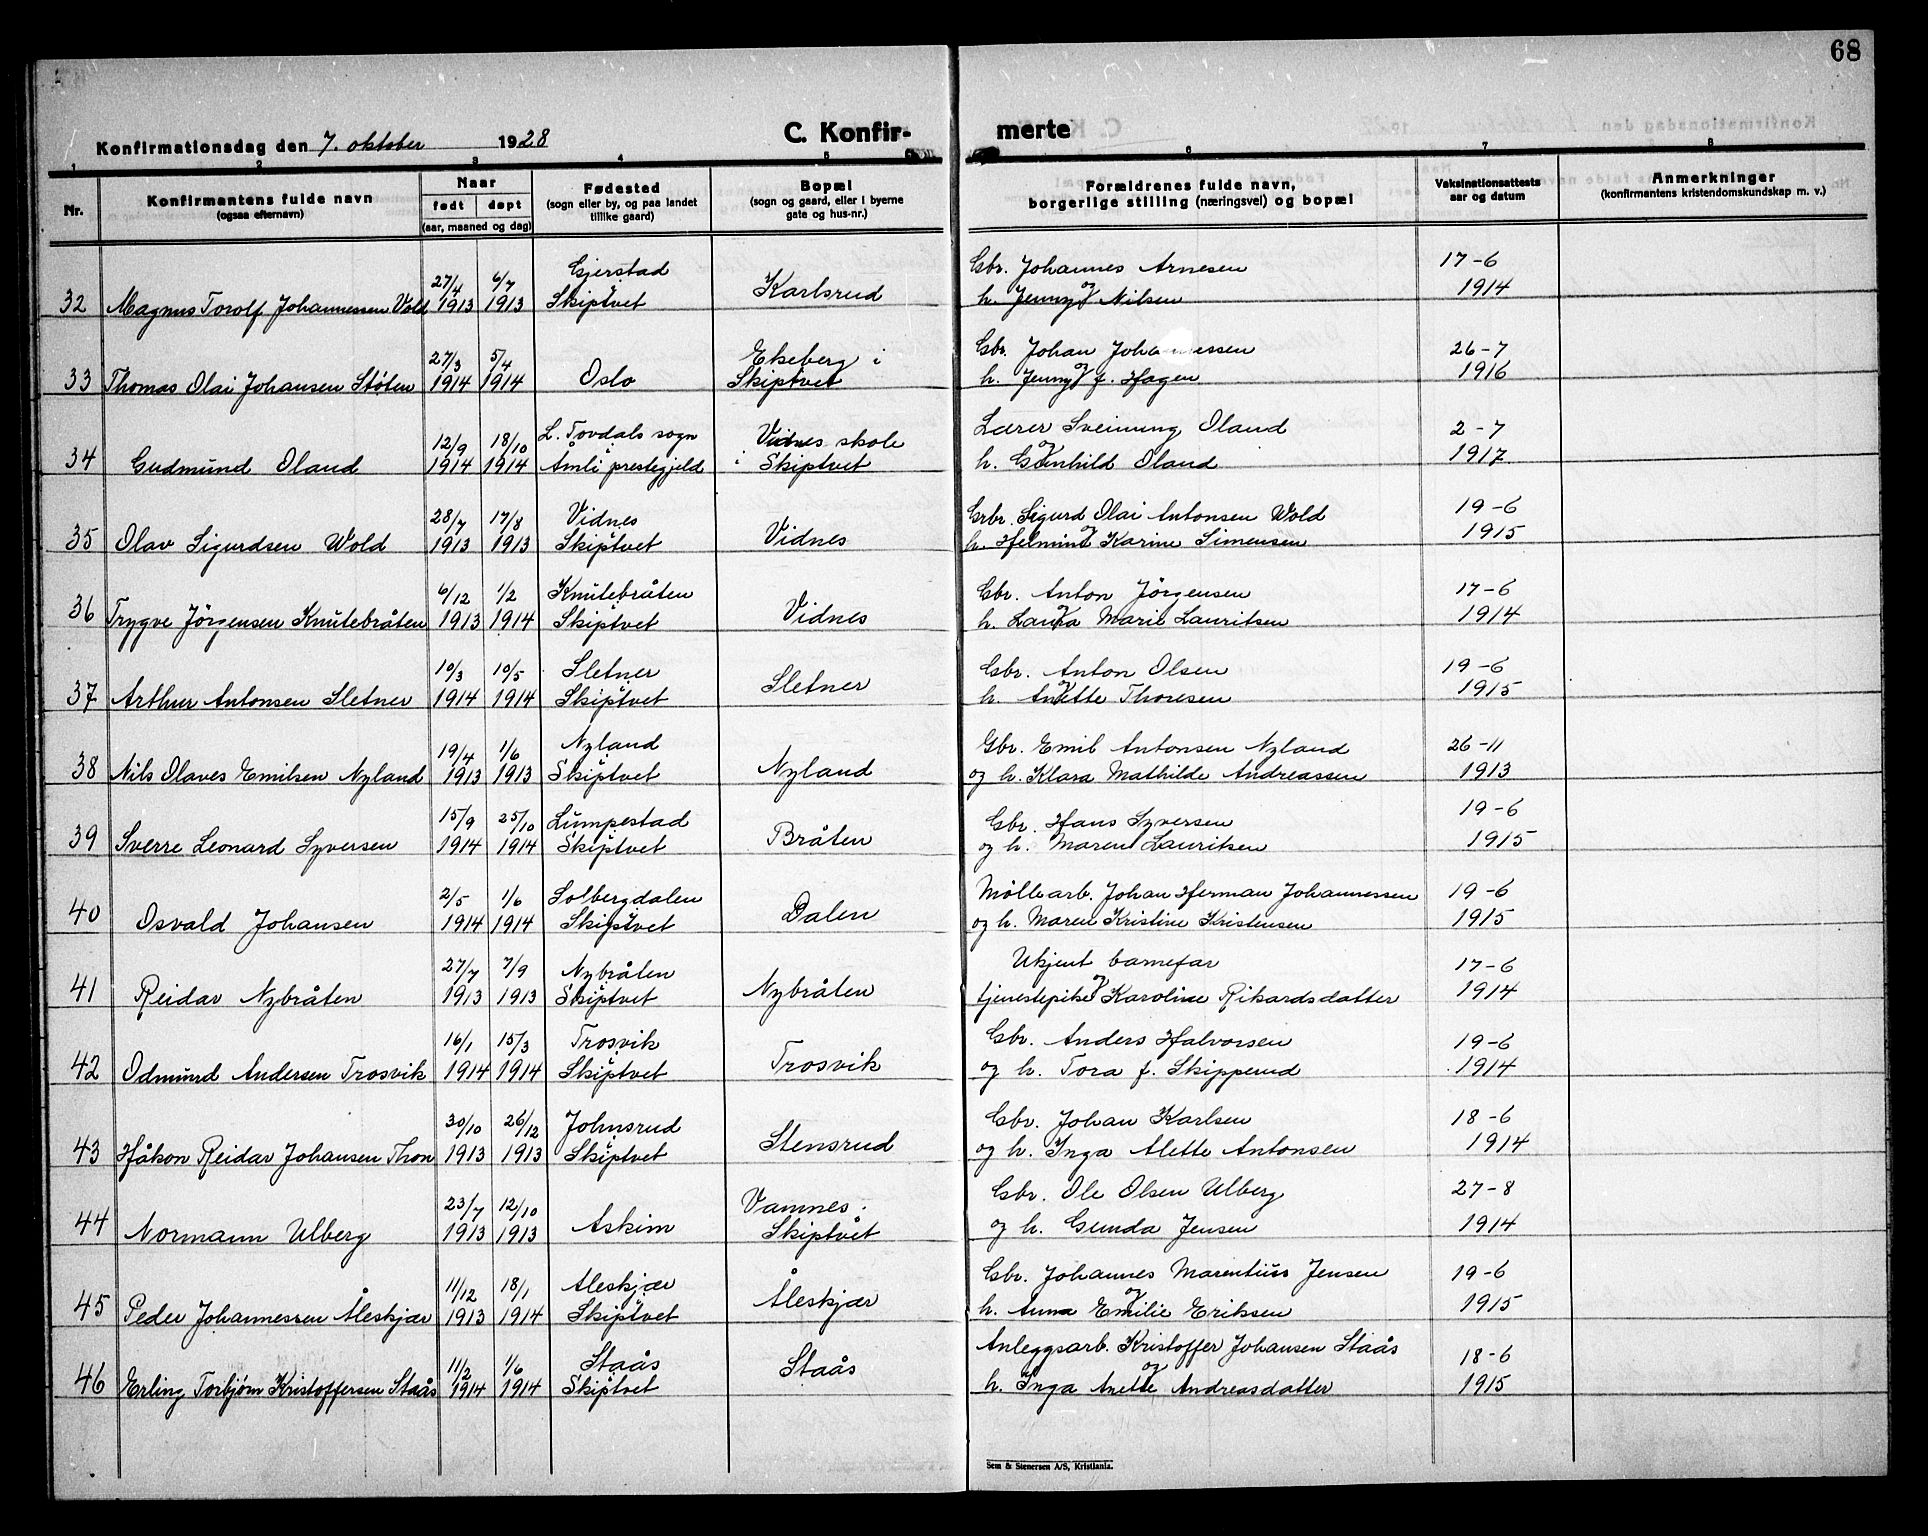 68
Konfirmationsdag den 7. oktober 1928
C. Konfir-
merte
1 2 3 4 5 6 7 8
Nr.
Konfirmantens fulde navn
(ogsaa efternavn)
Naar
født døpt
(aar, maaned og dag)
Fødested
(sogn eller by, og paa landet
tillike gaard)
Bopæl
(sogn og gaard, eller i byerne
gate og hus-nr.)
Forældrenes fulde navn,
borgerlige stilling (næringsvei) og bopæl
Vaksinationsattests
aar og datum
Anmerkninger
(konfirmantens kristendomskundskap m. v.)
27/4 6/7 Gjerstad Karlsrud Gbr. Johannes Arnesen 17-6
32 Magnus Torolf Johannessen Wold 1913 1913 Skiptvet h. Jenny og Nilsen 1914
27/3 5/4 Ekeberg i Gbr. Johan Johannessen 26-7
33 Thomas Olai Johansen Støten 1914 1914 Oslo Skiptvet h. Jenny og f. Hagen 1916
12/9 18/10 L. Tovdals sogn Vidnes skole Lærer Sveinung Oland 2-7
34 Gudmund Oland 1914 1914 Åmli prestegjeld i Skiptvet og h. Gunhild Oland 1917
28/7 17/8 Vidnes Gbr. Sigurd Olai Antonsen Wold 19-6
35 Olav Sigurdsen Wold 1913 1913 Skiptvet Vidnes h. Helmine og Karine Simensen 1915
6/12 1/2 Knutebråten Gbr. Anton Jörgensen 17-6
36 Trygve Jörgensen Knutebråten 1913 1914 Skiptvet Vidnes og h. Laura Marie Lauritsen 1914
10/3 10/5 Sletner Gbr. Anton Olsen 19-6
37 Arthur Antonsen Sletner 1914 1914 Skiptvet Sletner og h. Anette Thoresen 1915
19/4 1/6 Nyland Gbr. Emil Antonsen Nyland 26-11
38 Nils Olaves Emilsen Nyland 1913 1913 Skiptvet Nyland og h. Klara Mathilde Andreassen 1913
15/9 25/10 Lumpestad Gbr. Hans Syversen 19-6
39 Sverre Leonard Syversen 1914 1914 Skiptvet Bråten og h. Maren Lauritsen 1915
2/5 1/6 Solbergdalen Möllearb. Johan Herman Johannessen 19-6
40 Osvald Johansen 1914 1914 Skiptvet Dalen og h. Maren Kristine Kristensen 1915
27/7 7/9 Nybråten Ukjent barnefar 17-6
41 Reidar Nybråten 1913 1913 Skiptvet Nybråten tjenestepike og Karoline Rikardsdatter 1914
16/1 15/3 Trosvik Gbr. Anders Halvorsen 19-6
42 Odmund Andersen Trosvik 1914 1914 Skiptvet Trosvik og h. Tora f. Skipperud 1914
30/10 26/12 Johnsrud Gbr. Johan Karlsen 18-6
43 Håkon Reidar Johansen Thon 1913 1913 Skiptvet Stensrud og h. Inga Alette Antonsen 1914
23/7 12/10 Vamnes Gbr. Ole Olsen Ulberg 27-8
44 Normann Ulberg 1913 1913 Askim Skiptvet og h. Gunda Jensen 1914
11/12 18/1 Aleskjær Gbr. Johannes Marentius Jensen 19-6
45 Peder Johannessen Åleskjær 1913 1914 Skiptvet Åleskjær og h. Anna Emilie Eriksen 1915
11/2 1/6 Staås Anleggsarb. Kristoffer Johansen Staås 18-6
46 Erling Torbjørn Kristoffersen Staås 1914 1914 Skiptvet Staås og h. Inga Anette Andreasdatter 1915
Sem & Stenersen A/S, Kristiania.